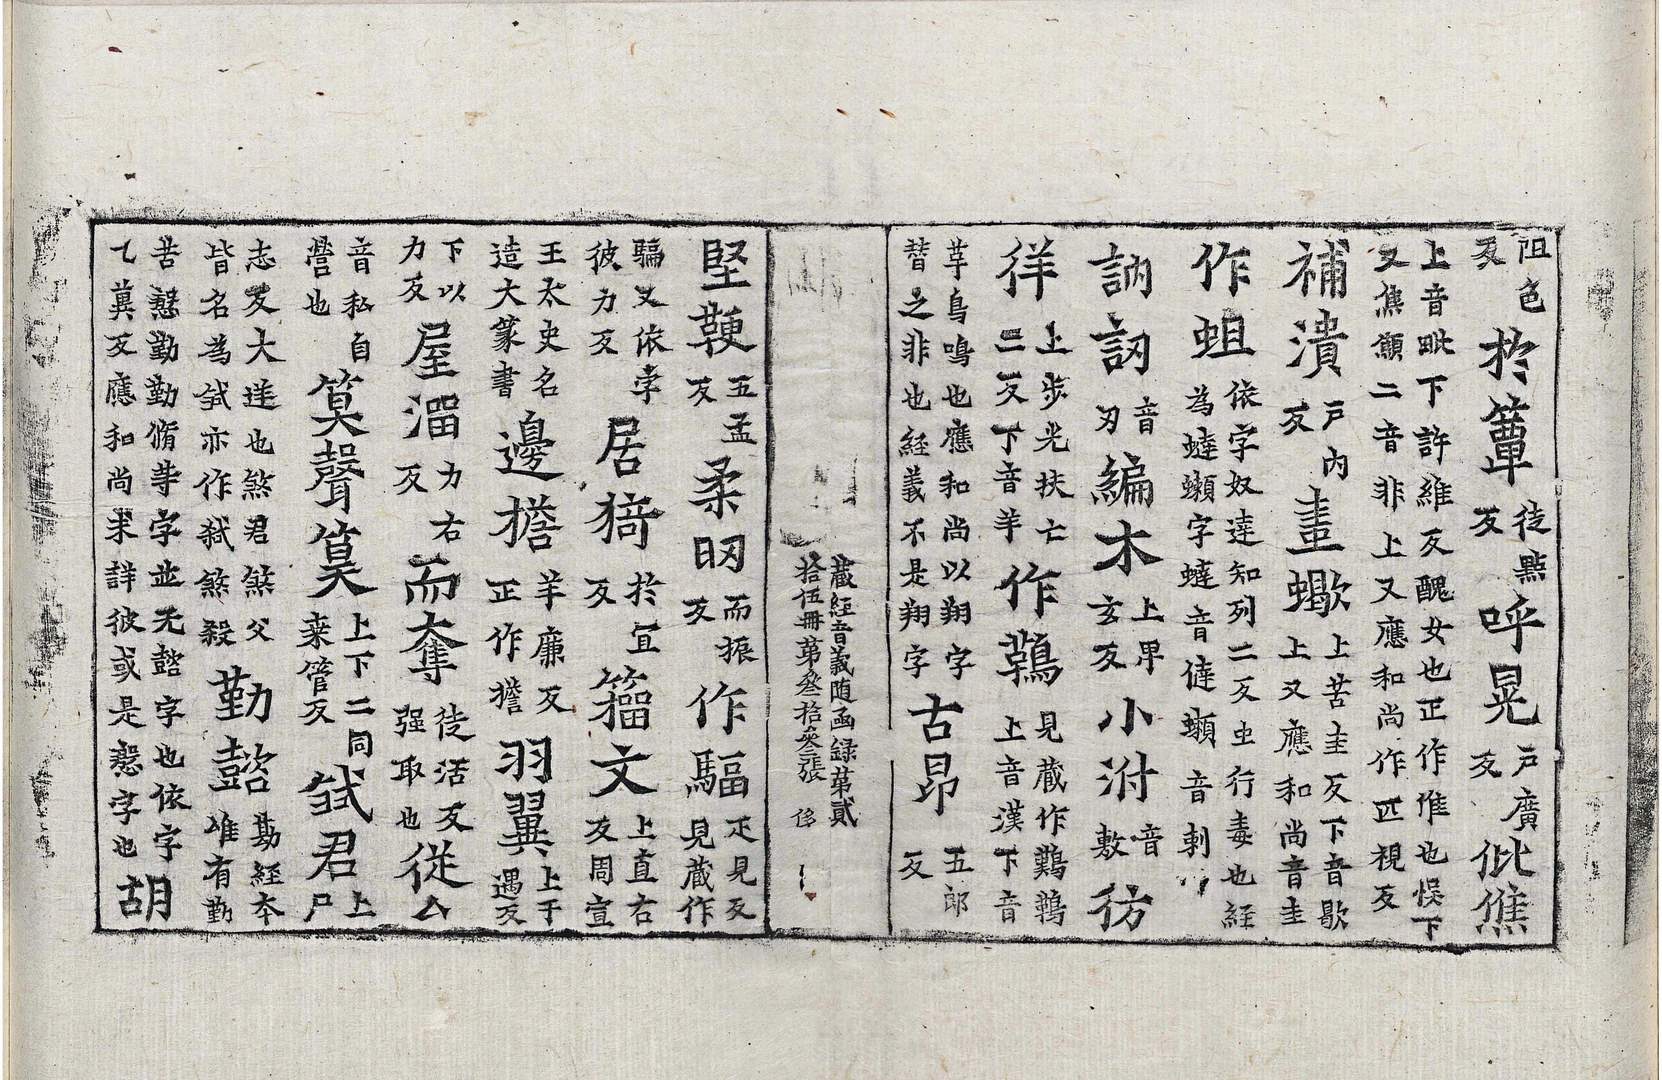 阻色反於簟徒點反呼晃戶廣反仳僬
上音毗下許維反醜女也正作倠也悮下
又焦顦二音非上又應和尚作匹視反
補潰戶內反畫蠍上苦圭反下音歇上又應和尚音圭
作蛆依字奴達知列二反虫行毒也経為蟽蠏字蟽音㒓蠏音剌
訥訒音刃編木上畢玄反小泭音敷彷
徉上步光扶亡二反下音羊作鶾見藏作鸛鶾上音漢下音
莘鳥鳴也應和尚以翔字替之非也経義不是翔字古昂五郎反
藏経音義随函録第貳拾伍冊第叄拾叄張
堅鞕五孟反柔明而振反作騙疋見反見藏作
騙又依孛彼力反居猗於宜反籀文上直右反周宣
王太史名造大篆書邊擔羊廉反正作檐羽翼上于遇反
下以力反屋霤力右反而奪徒活反强取也従厶
音私自營也筭聲筭上下二同桒管反弒君上尸
志反大逆也煞君煞父皆名為弒亦作弒煞殺勤懿勘経夲唯有勤
苦懃勤勤脩等字並无懿字也依字乙冀反應和尚未詳彼或是懃字也胡